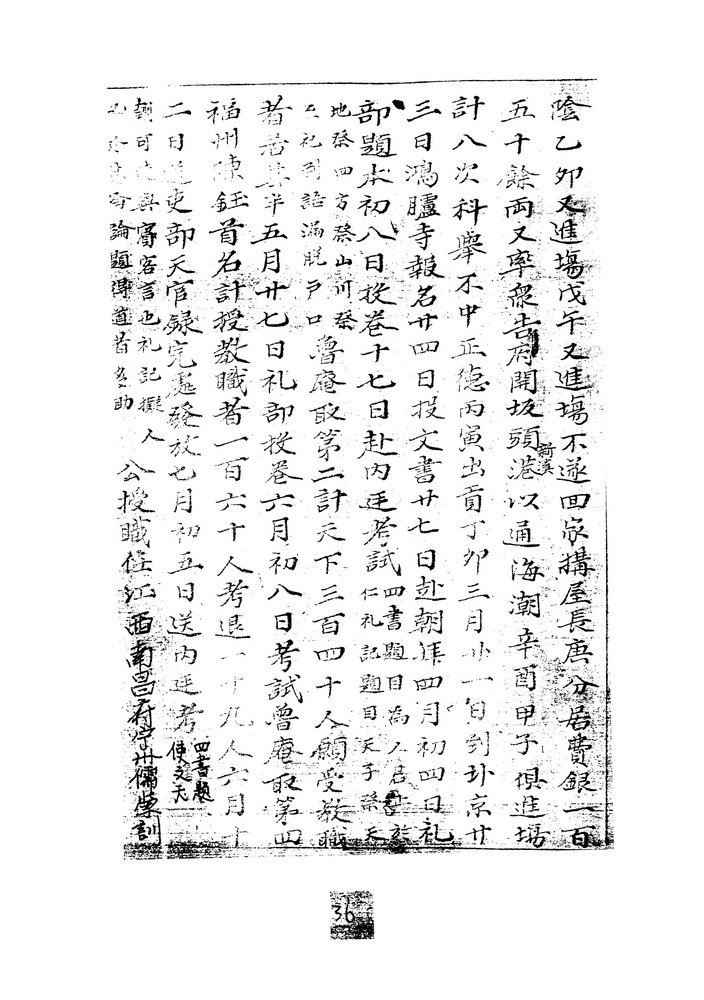 陰乙卯又進場戊午又進場不遂回家搆屋長唐分居費銀一百
五十餘兩又率衆告府開坂頭港以通海潮辛酉甲子俱進場
新濱
計八次科舉不中正德丙寅出貢丁卯三月廿一日到北京廿
三日鴻臚寺報名廿四日投文書廿七日赴朝拜四月初四日礼
部題本初八日投卷十七日赴內廷考試四書題目為人君止於
仁礼記題目天子祭天
地祭四方祭山川祭
漏脫戶口
魯庵取第二計天下三百四十人願受教職
者 五月廿七日礼部投卷六月初八日考試魯庵取第四
福州陳鈺首名計授教職者一百六十人考退一十九人六月十
二日送吏部天官錄完選發放七月初五日送內廷考四書題
使文天
與賓客言也礼記擬人
論題得道者多助
公授職任江西南昌府寧州儒學訓
36